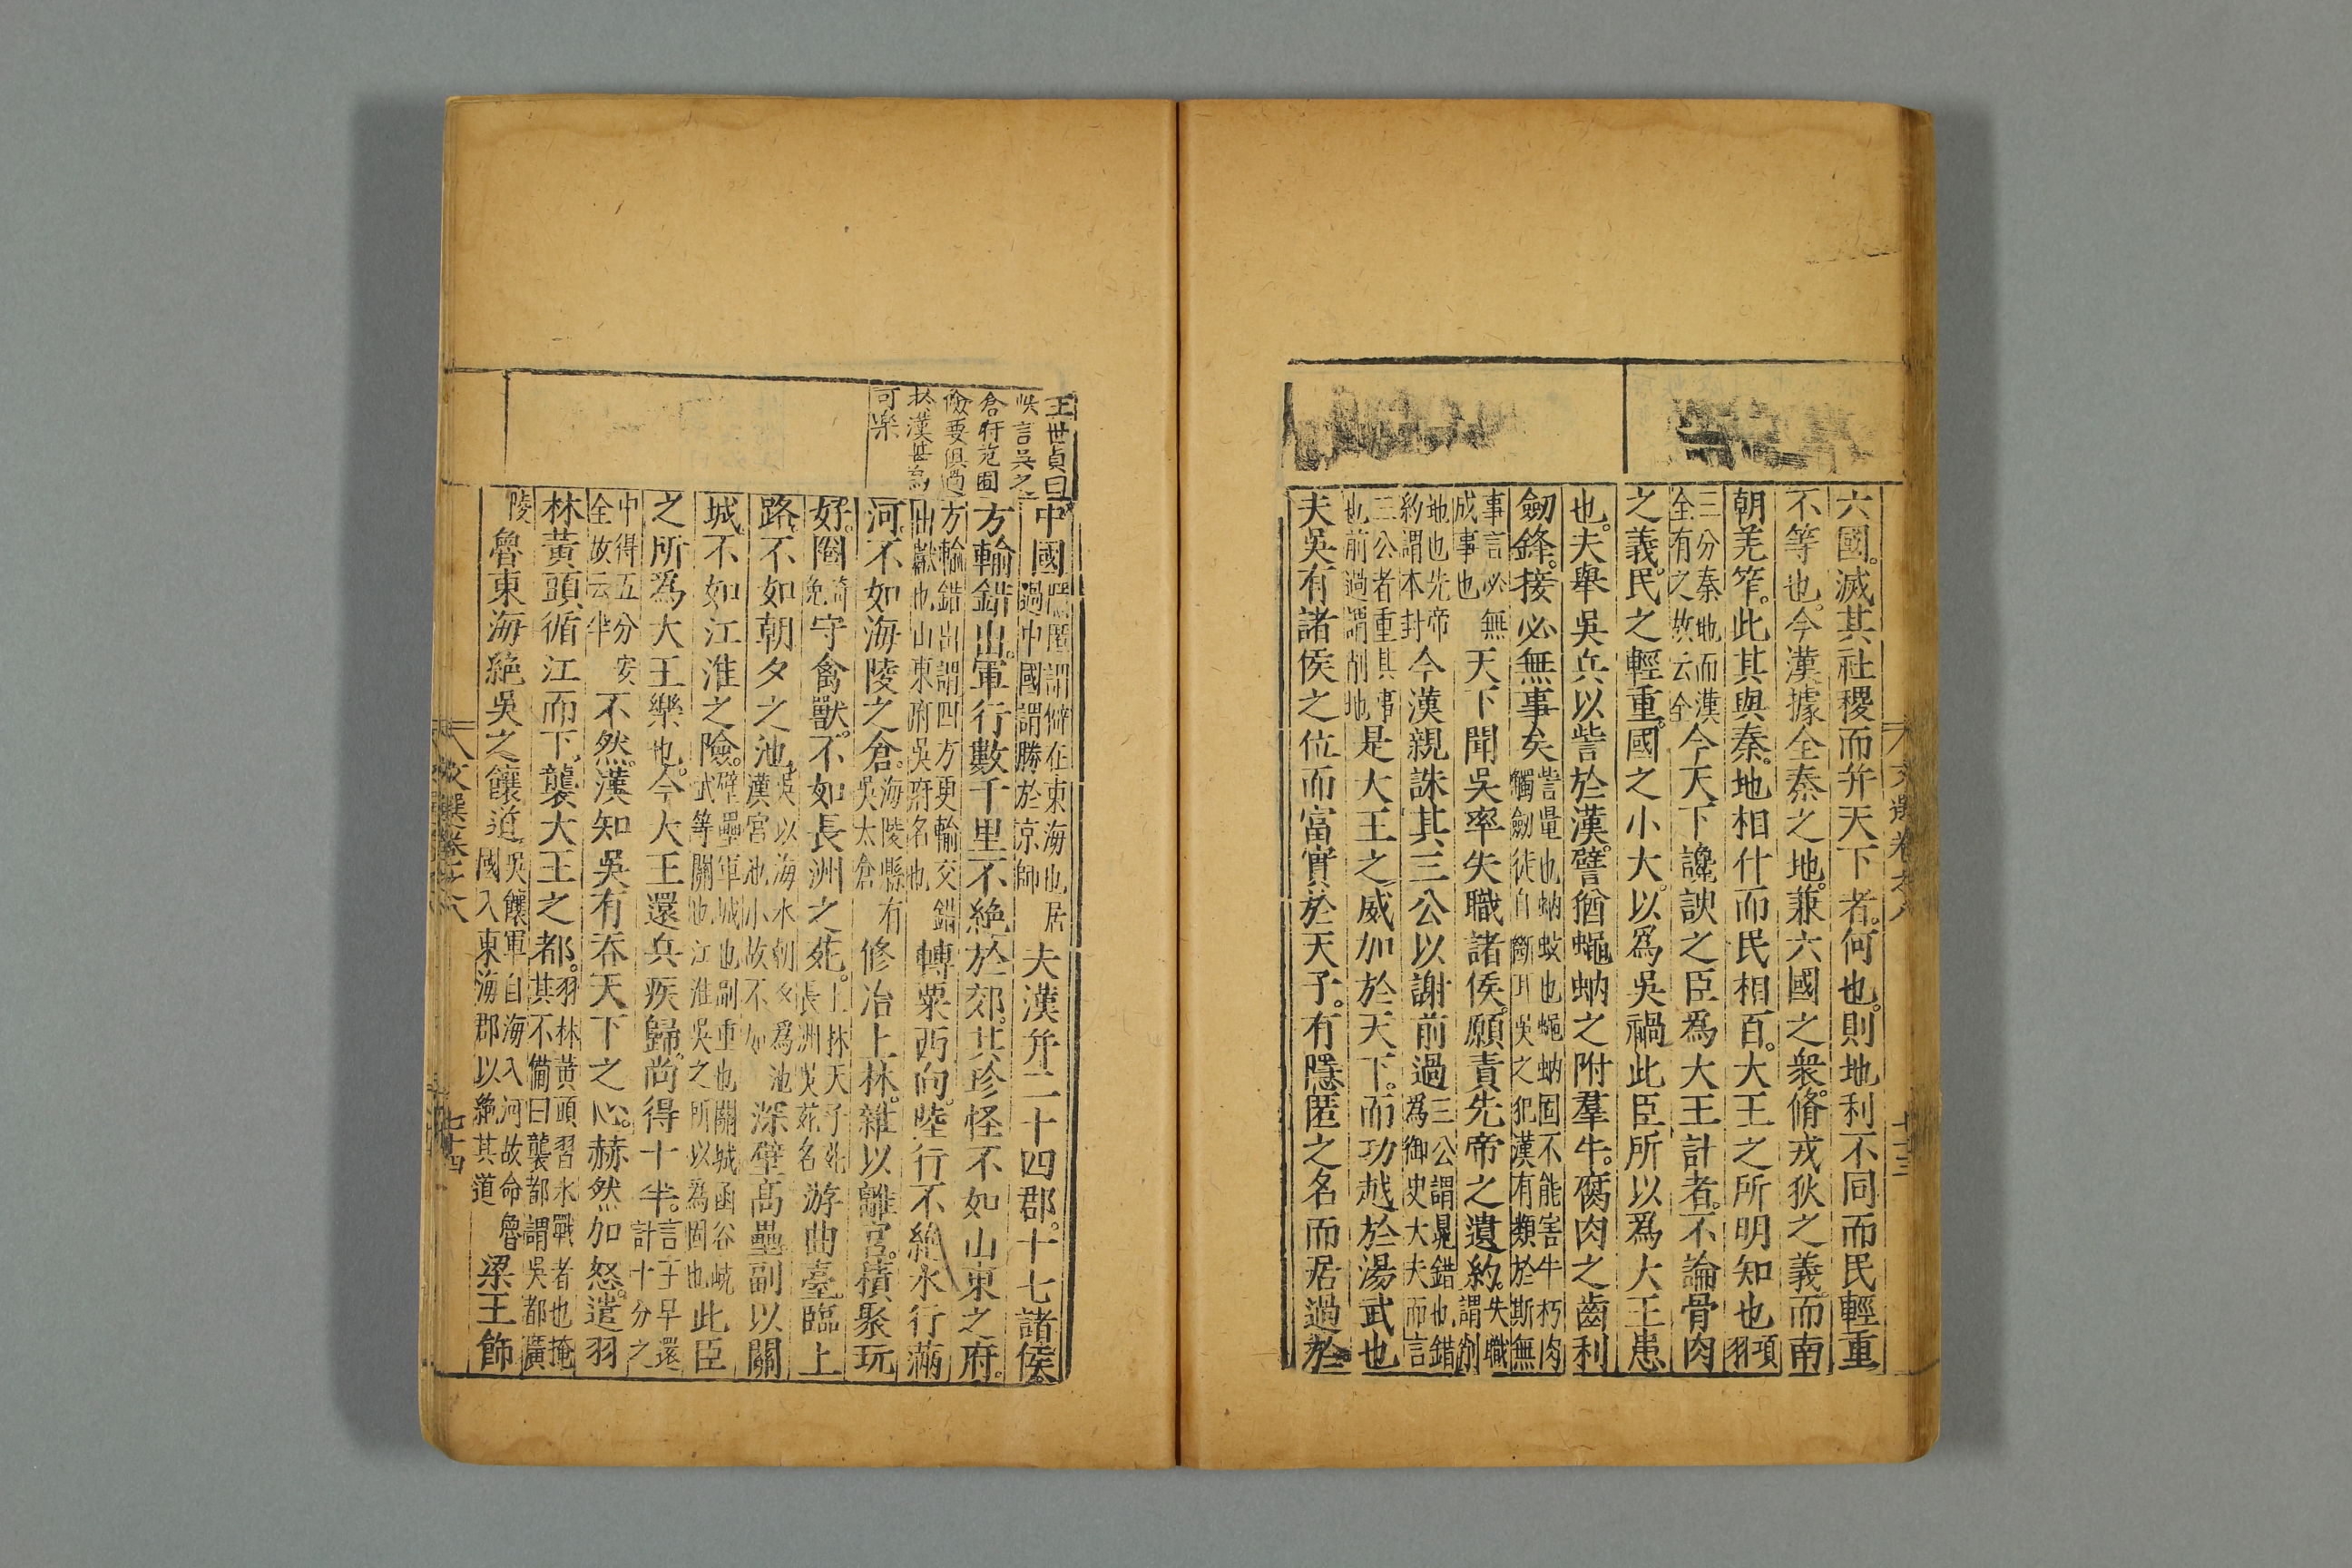 六國。滅其社稷而并天下者。何也。則地利不同而民輕重
不等也。今漢據全秦之地。兼六國之衆。脩戎狄之義。而南
朝羌筰。此其與秦。地相什而民相百。大王之所明知也項羽
三分秦地而漢全有之故云全今天下讒諛之臣為大王計者。不論骨肉
之義。民之輕重。國之小大。以為吳禍。此臣所以爲大王患
也。夫舉吳兵以訾於漢。譬猶蠅蚋之附羣牛。腐肉之齒利
劒鋒。接必無事矣訾量也蚋蚊也蠅蚋固不能害牛朽肉觸劒徒自斷耳吳之犯漢有類於斯無
事言必無成事也天下聞吳率失職諸侯。願責先帝之遺約。失職謂削
地也先帝約謂本封今漢親誅其三公以謝前過三公謂晁錯也錯為御史大夫而言
三公者重其事也前過謂削地是大王之威加於天下。而功越於湯武也
夫吳有諸侯之位而富實於天子。有隱匿之名而居過於
文選卷之八
七十三
王世貞曰
言吳之
險要俱過
於漢甚為
可楽
中國隱匿謂僻在東海也居過中國謂勝於京師夫漢并二十四郡。十七諸侯。
方輸錯出。軍行數千里不絶於郊。其珍怪不如山東之府。
方輸錯出謂四方更輸交錯出獻也山東府吳府名也轉粟西向。陸行不絶水行滿
河。不如海陵之倉。海陵縣有吳太倉修冶上林。雜以離宮。積聚玩
好。圈守禽獸。不如長洲之苑。上林天子苑長洲吳苑名游曲臺。臨上
路。不如朝夕之池。吳以海水朝夕為池漢宮池小故不如深壁高壘。副以關
城。不如江淮之險。壁壘軍城也副重也關城函谷嶢武等關也江淮吳之所以為固也此臣
之所爲大王樂也。今大王還兵疾歸。尚得十半。言王早還計十分之
中得五分安全故云半不然。漢知吳有吞天下之心。赫然加怒。遣羽
林黃頭。循江而下。襲大王之都。羽林黃頭習水戰者也掩其不備曰襲都謂吳都廣
陵魯東海絶吳之饟道吳饟軍自海入河故命魯國入東海郡以絶其道梁王飾
文選卷之八
七十四